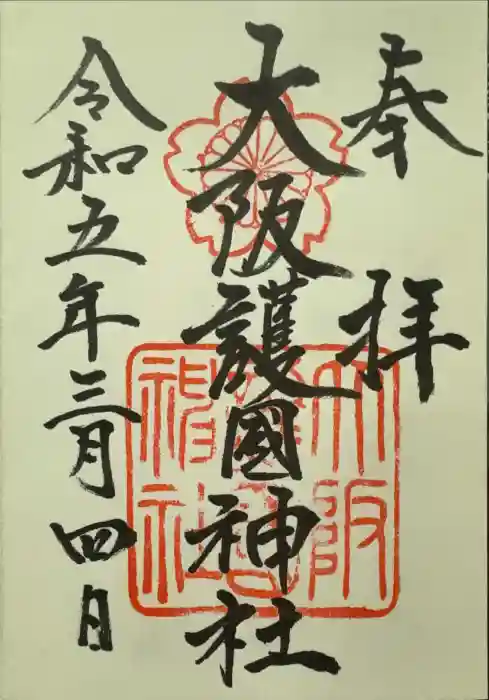 奉拝
大阪護國神社
令和五年三月四日